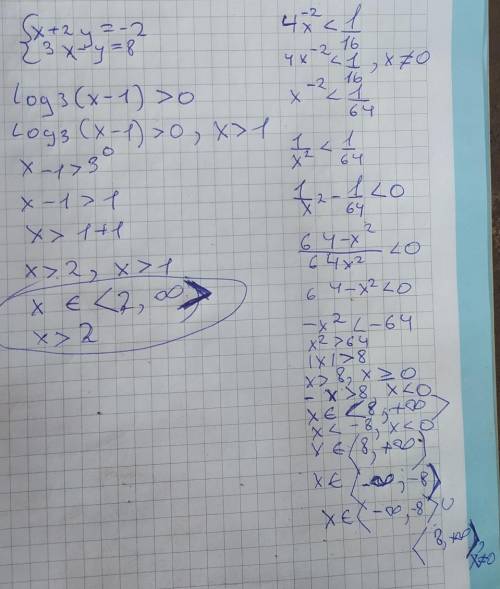 {x+2y=-2
{3x-y=8
log3(x-1)>0
log3(x-1)>0, x>1
x-1>3⁰
x-1>1
x>1+1
x>2, x>1
x ∈ <2, ∞>
x>2
4x⁻²<1/16
4x⁻²<1/16, x≠0
x⁻²<1/64
1/x²<1/64
1/x²-1/64<0
64-x²/64x²<0
64-x²<0
-x²<-64
x²>64
|x|>8
x>8, x≥0
-x>8, x<0
x∈<8, +∞>
x<-8, x<0
x∈(8, +∞)
x∈(-∞, -8)
x∈<-∞, -8>∪
<8, +∞>, x≠0